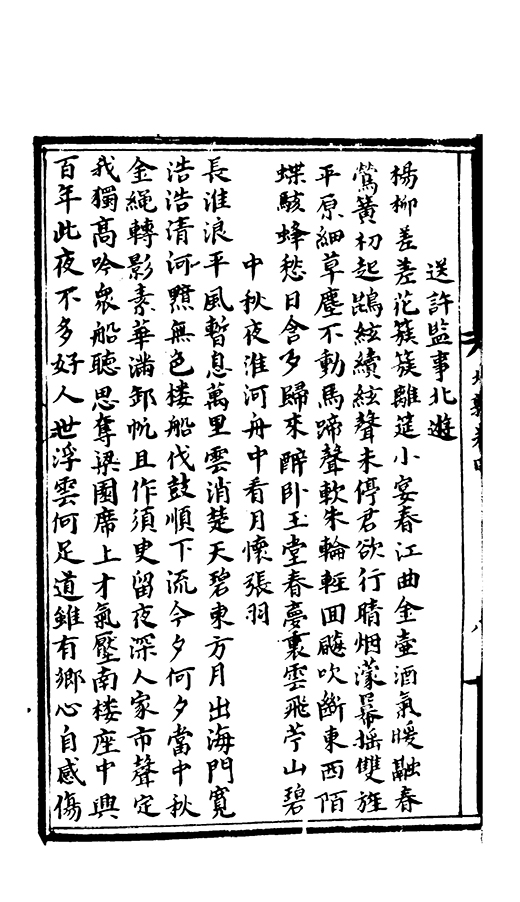 送許監事北遊
楊柳差差花簇簇離筵小宴春江曲金壷酒氣暖融春
鶯簧初起鵾絃續絃聲未停君欲行晴烟濛羃揺雙旌
平原細草塵不動馬蹄聲軟朱輪輕囬飈吹斷東西陌
蝶駭蜂愁日含夕歸來醉卧玉堂春夢裏雲飛苧山碧
中秋夜淮河舟中看月懷張羽
長淮浪平風暫息萬里雲消楚天碧東方月出海門寛
浩浩清河黯無色楼船伐鼓順下流今夕何夕當中秋
金繩轉影素華滿卸帆且作須臾留夜深人家市聲定
我獨髙吟衆船聽思奪梁園席上才氣壓南楼座中興
百年此夜不多好人世浮雲何足道雖有鄉心自感傷